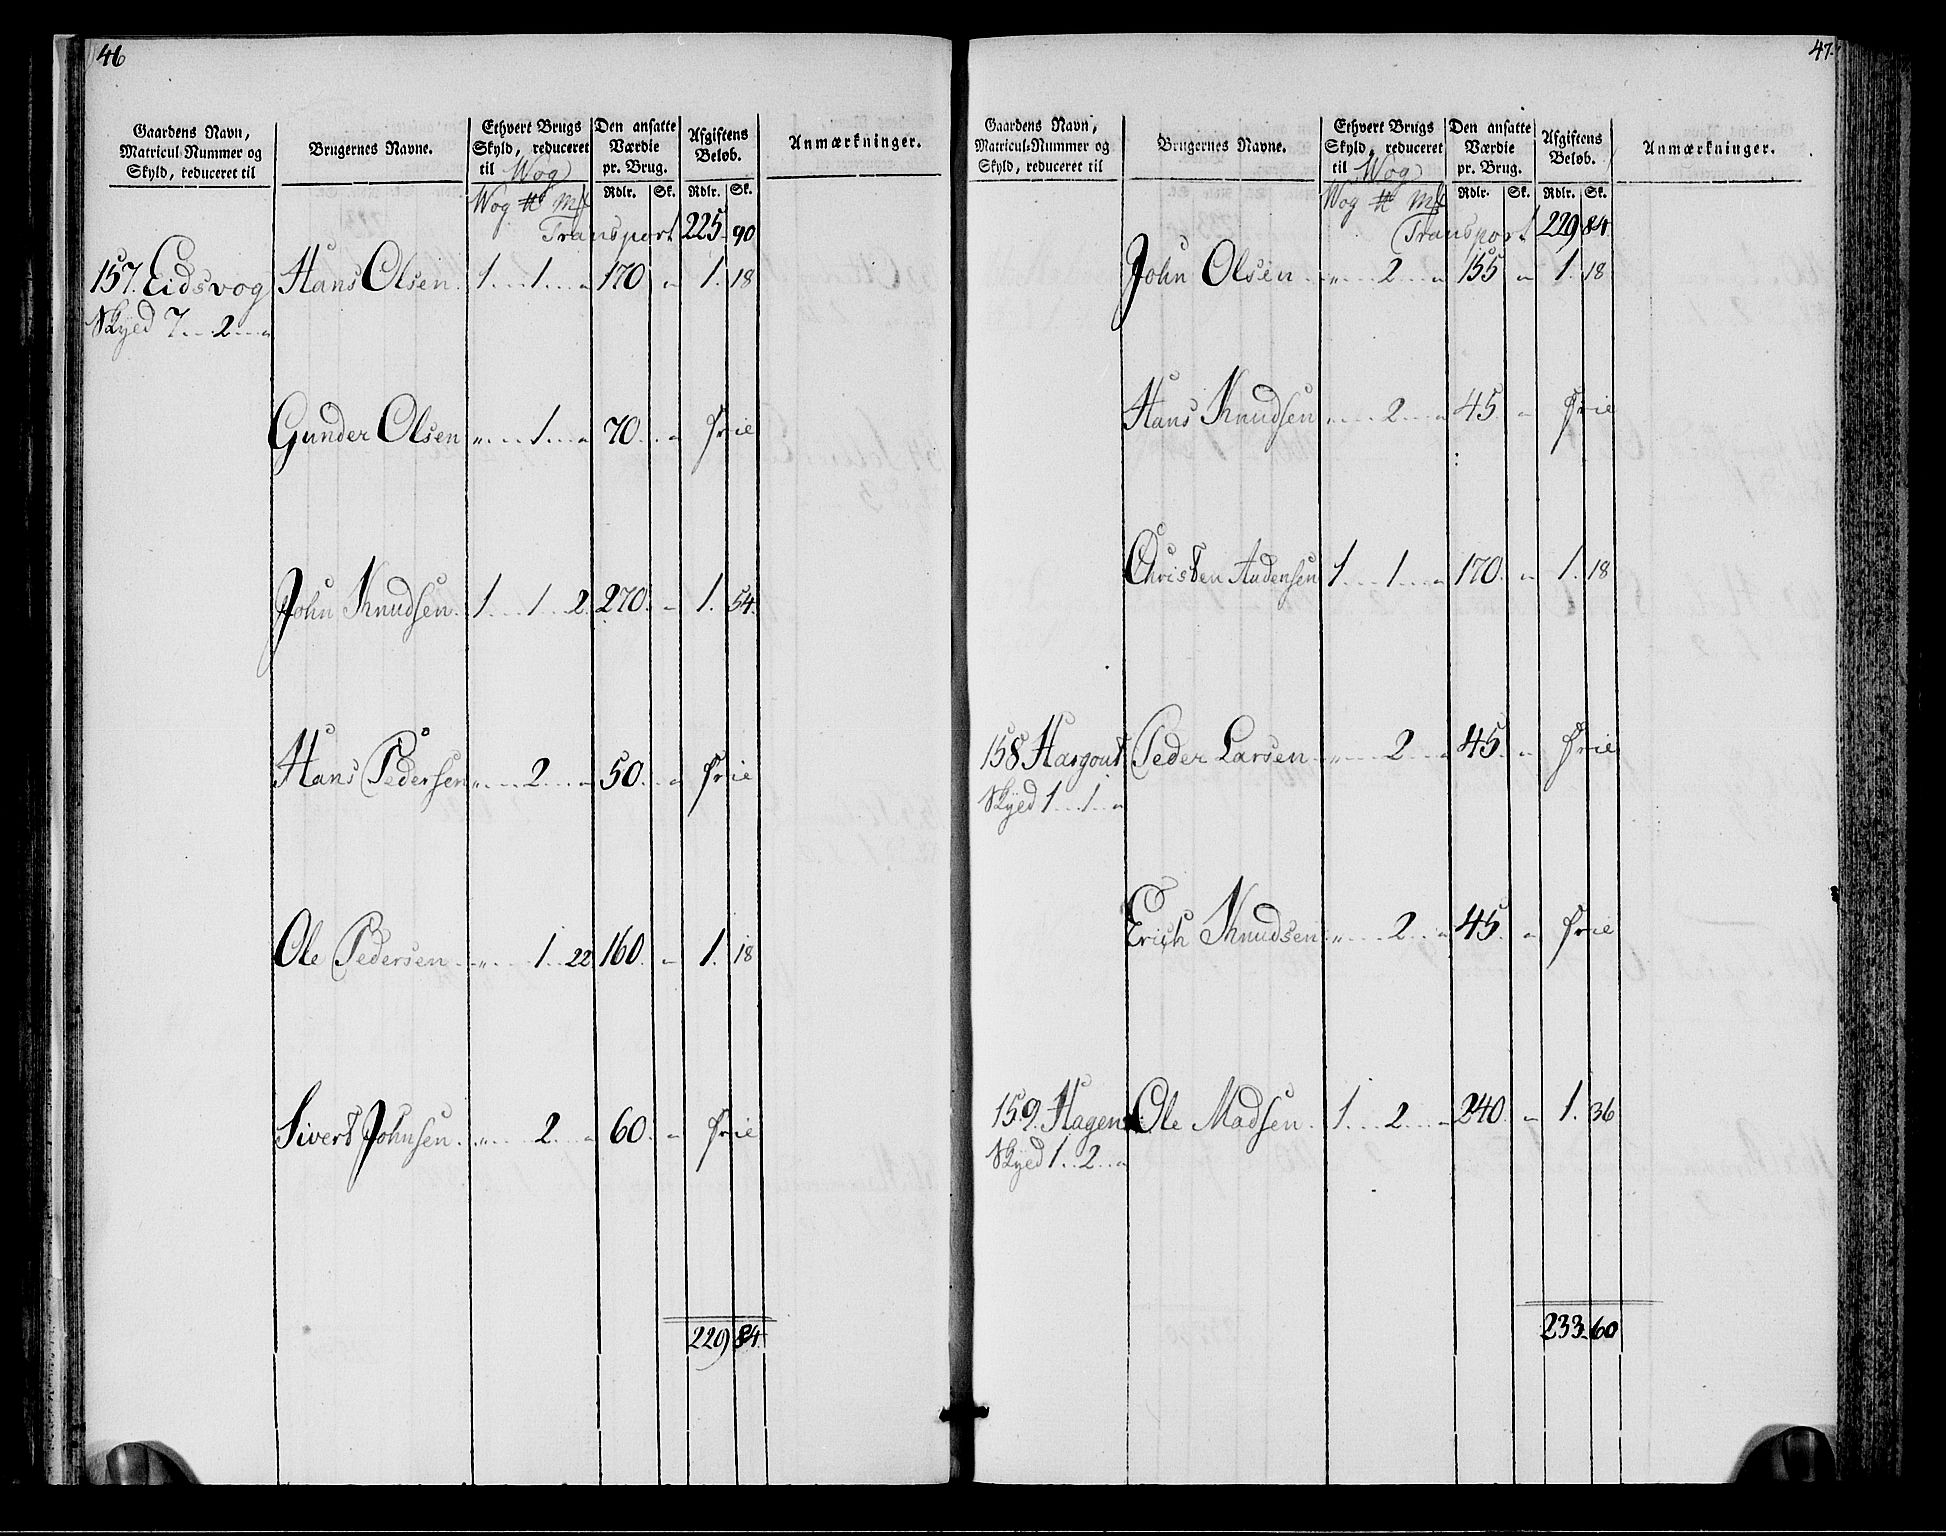 46
Gaardens Navn, Matricul-Nummer og Skyld, reduceret til | Brugernes Navne. | Ethvert Brugs Skyld, reduceret til Wog | Den ansatte Værdie pr. Brug. | Afgiftens Beløb. | Anmærkninger.
Wog ℔ Mk | Rdlr. Sk. | Rdlr. Sk.
Transport 225. 90
157. Eidsvog Hans Olsen. 1...1...„ 170 „ 1. 18
Skyld 7...2...„
Gunder Olsen „...1...„ 70...„ frie
John Knudsen. 1...1..2. 270. „ 1. 54.
Hans Pedersen „...2...„ 50...„ frie
Ole Pedersen „...1..22 160. „ 1. 18
Sivert Johnsen. „...2...„ 60. „ frie
229 84.
47.
Gaardens Navn, Matricul-Nummer og Skyld, reduceret til | Brugernes Navne. | Ethvert Brugs Skyld, reduceret til Wog | Den ansatte Værdie pr. Brug. | Afgiftens Beløb. | Anmærkninger.
Wog ℔ Mk | Rdlr. Sk. | Rdlr. Sk.
Transport 229 84.
John Olsen. „...2...„ 155 „ 1. 18
Hans Knudsen „...2...„ 45. „ frie
Christen Andersen 1...1...„ 170. „ 1. 18
158 Hargout Peder Larsen „...2...„ 45. „ frie
Skyld 1...1...„
Erich Knudsen „...2...„ 45. „ frie
159. Hagen Ole Madsen. 1...2...„ 240 „ 1. 36
Skyld 1...2...„
233. 60